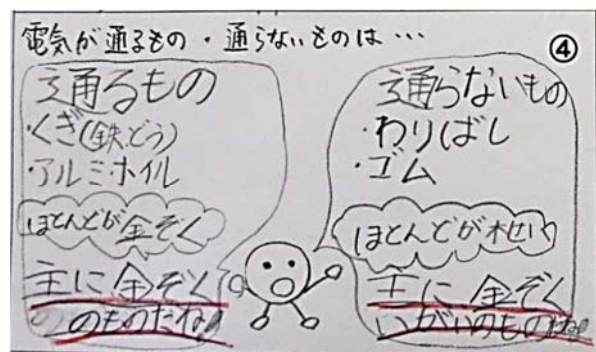 電気が通るもの・通らないものは…
④
通るもの
・くぎ(鉄、どう)
・アルミホイル
ほとんどが金ぞく
主に金ぞく
のものだね!
通らないもの
・わりばし
・ゴム
ほとんどが木せい
主に金ぞく
いがいのものだね!